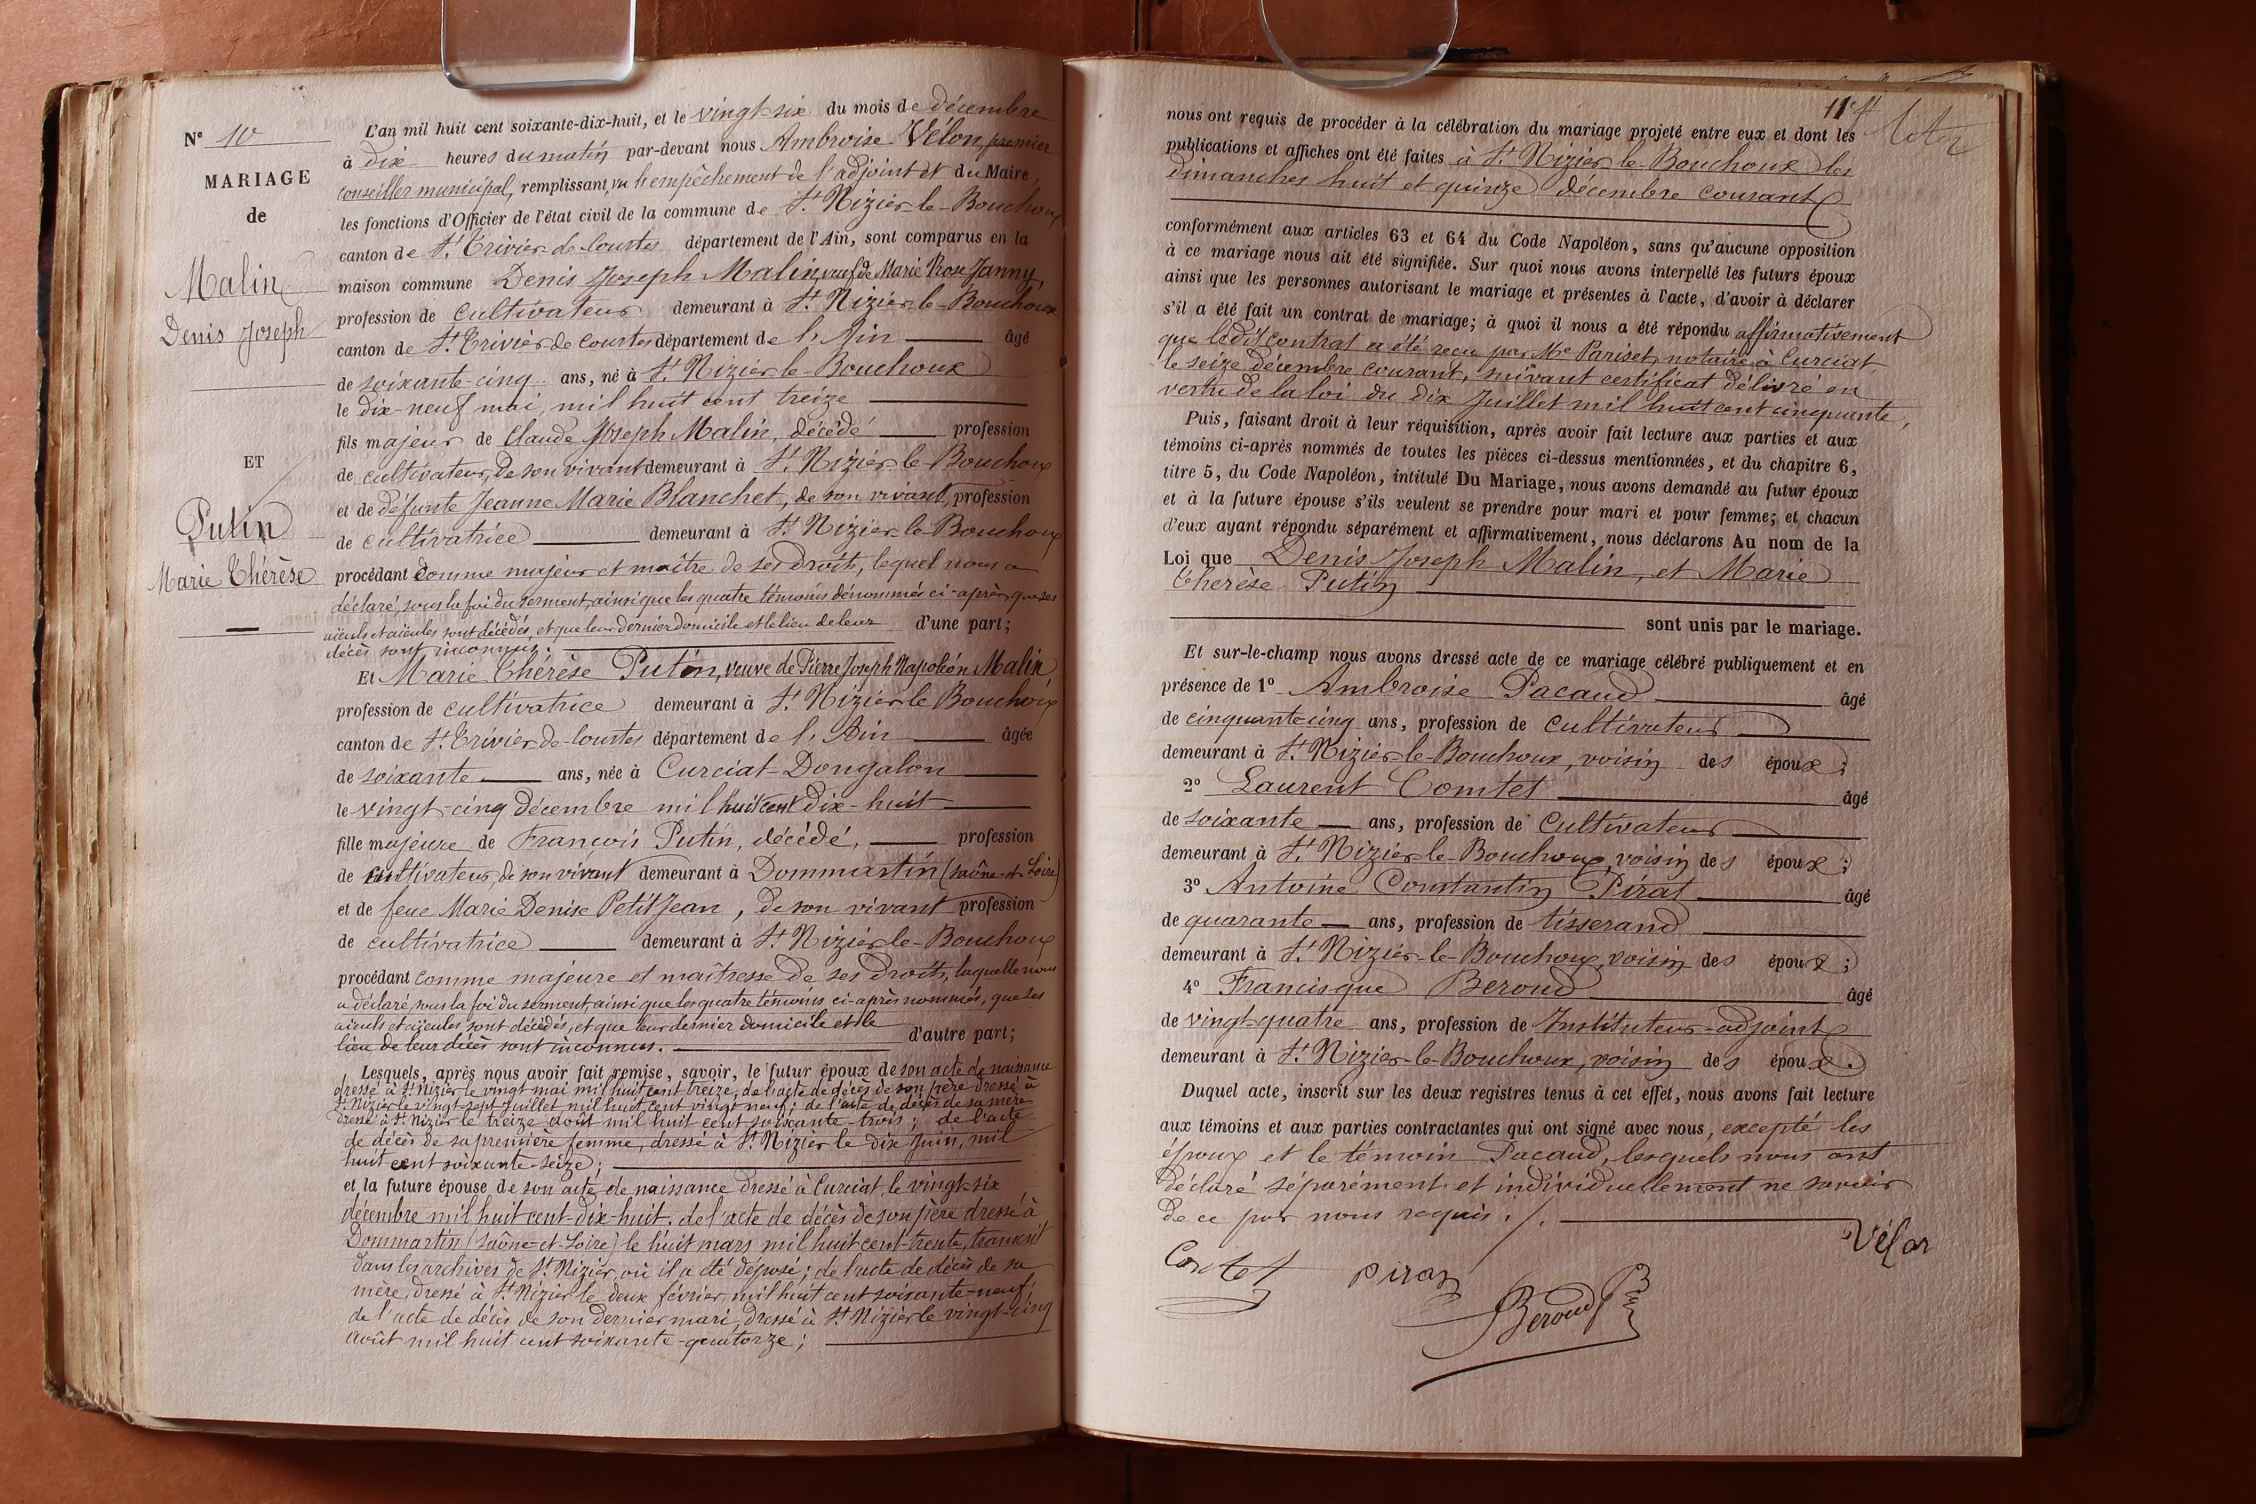 N° 10
MARIAGE
de
Malin
Denis Joseph
ET
Putin
Marie Thérèse
L'an mil huit cent soixante-dix-huit, et le vingt-six du mois de décembre
à dix heures du matin par-devant nous Ambroise Vélon, premier
conseiller municipal, remplissant, vu l'empêchement de l'adjoint et du Maire,
les fonctions d'Officier de l'état civil de la commune de St Nizier-le-Bouchoux
canton de St Trivier-de-Courtes département de l'Ain, sont comparus en la
maison commune Denis Joseph Malin, veuf de Marie Rose Janny,
profession de cultivateur demeurant à St Nizier-le-Bouchoux
canton de St Trivier de Courtes département de l'Ain âgé
de soixante-cinq ans, né à St Nizier-le-Bouchoux
le dix-neuf mai, mil huit cent treize
fils majeur de Claude Joseph Malin, décédé profession
de cultivateur, de son vivant demeurant à St Nizier-le-Bouchoux
et de défunte Jeanne Marie Blanchet, de son vivant, profession
de cultivatrice demeurant à St Nizier-le-Bouchoux
procédant comme majeur et maître de ses droits, lequel nous a
déclaré, sous la foi du serment, ainsi que les quatre témoins dénommés ci-après, que ses
aïeuls et aïeules sont décédés, et que leur dernier domicile et le lieu de leur d'une part;
décès sont inconnus.
Et Marie Thérèse Putin, veuve de Pierre Joseph Napoléon Malin,
profession de cultivatrice demeurant à St Nizier le Bouchoux
canton de St Trivier-de-Courtes département de l'Ain âgée
de soixante ans, née à Curciat-Dongalon
le vingt-cinq décembre mil huit cent dix-huit
fille majeure de François Putin, décédé, profession
de cultivateur, de son vivant demeurant à Dommartin (Saône-et-Loire)
et de feue Marie Denise Petitjean, de son vivant profession
de cultivatrice demeurant à St Nizier-le-Bouchoux
procédant comme majeure et maîtresse de ses droits, laquelle nous
a déclaré, sous la foi du serment, ainsi que les quatre témoins ci-après nommés, que ses
aïeuls et aïeules sont décédés, et que leur dernier domicile et le d'autre part;
lieu de leur décès sont inconnus.
Lesquels, après nous avoir fait remise, savoir, le futur époux de son acte de naissance
dressé à St Nizier le vingt mai mil huit cent treize, de l'acte de décès de son père dressé à
St Nizier le vingt-sept juillet mil huit cent vingt neuf; de l'acte de décès de sa mère
dressé à St Nizier le treize août mil huit cent soixante-trois; de l'acte
de décès de sa première femme, dressé à St Nizier le dix juin, mil
huit cent soixante-seize;
et la future épouse de son acte de naissance dressé à Curciat, le vingt-six
décembre mil huit cent-dix-huit. de l'acte de décès de son père dressé à
Dommartin (Saône-et-Loire) le huit mars mil huit cent-trente, transcrit
dans les archives de St Nizier, où il a été déposé; de l'acte de décès de sa
mère, dressé à St Nizier le deux février, mil huit cent soixante-neuf
de l'acte de décès de son dernier mari, dressé à St Nizier le vingt-cinq
août mil huit cent soixante-quatorze;
nous ont requis de procéder à la célébration du mariage projeté entre eux et dont les
publications et affiches ont été faites à St Nizier-le-Bouchoux les
dimanches huit et quinze décembre courant
conformément aux articles 63 et 64 du Code Napoléon, sans qu'aucune opposition
à ce mariage nous ait été signifiée. Sur quoi nous avons interpellé les futurs époux
ainsi que les personnes autorisant le mariage et présentes à l'acte, d'avoir à déclarer
s'il a été fait un contrat de mariage; à quoi il nous a été répondu affirmativement
que ledit contrat a été reçu par Me Pariset, notaire à Curciat
le seize décembre courant, suivant certificat délivré en
vertu de la loi du dix Juillet mil huit cent cinquante,
Puis, faisant droit à leur réquisition, après avoir fait lecture aux parties et aux
témoins ci-après nommés de toutes les pièces ci-dessus mentionnées, et du chapitre 6,
titre 5, du Code Napoléon, intitulé Du Mariage, nous avons demandé au futur époux
et à la future épouse s'ils veulent se prendre pour mari et pour femme; et chacun
d'eux ayant répondu séparément et affirmativement, nous déclarons Au nom de la
Loi que Denis Joseph Malin, et Marie
Thérèse Putin
sont unis par le mariage.
Et sur-le-champ nous avons dressé acte de ce mariage célébré publiquement et en
présence de 1° Ambroise Pacaud âgé
de cinquante-cinq ans, profession de cultivateur
demeurant à St Nizier-le-Bouchoux, voisin des époux;
2° Laurent Comtet âgé
de soixante ans, profession de cultivateur
demeurant à St Nizier-le-Bouchoux, voisin des époux;
3° Antoine Constantin Pirat âgé
de quarante ans, profession de tisserand
demeurant à St Nizier-le-Bouchoux, voisin des époux;
4° Francisque Beroud âgé
de vingt-quatre ans, profession de Instituteur-adjoint
demeurant à St Nizier-le-Bouchoux, voisin des époux.
Duquel acte, inscrit sur les deux registres tenus à cet effet, nous avons fait lecture
aux témoins et aux parties contractantes qui ont signé avec nous, excepté les
époux et le témoin Pacaud, lesquels nous ont
déclaré séparément et individuellement ne savoir
de ce par nous requis ./.
Vélon
Comtet Pirat
Beroud